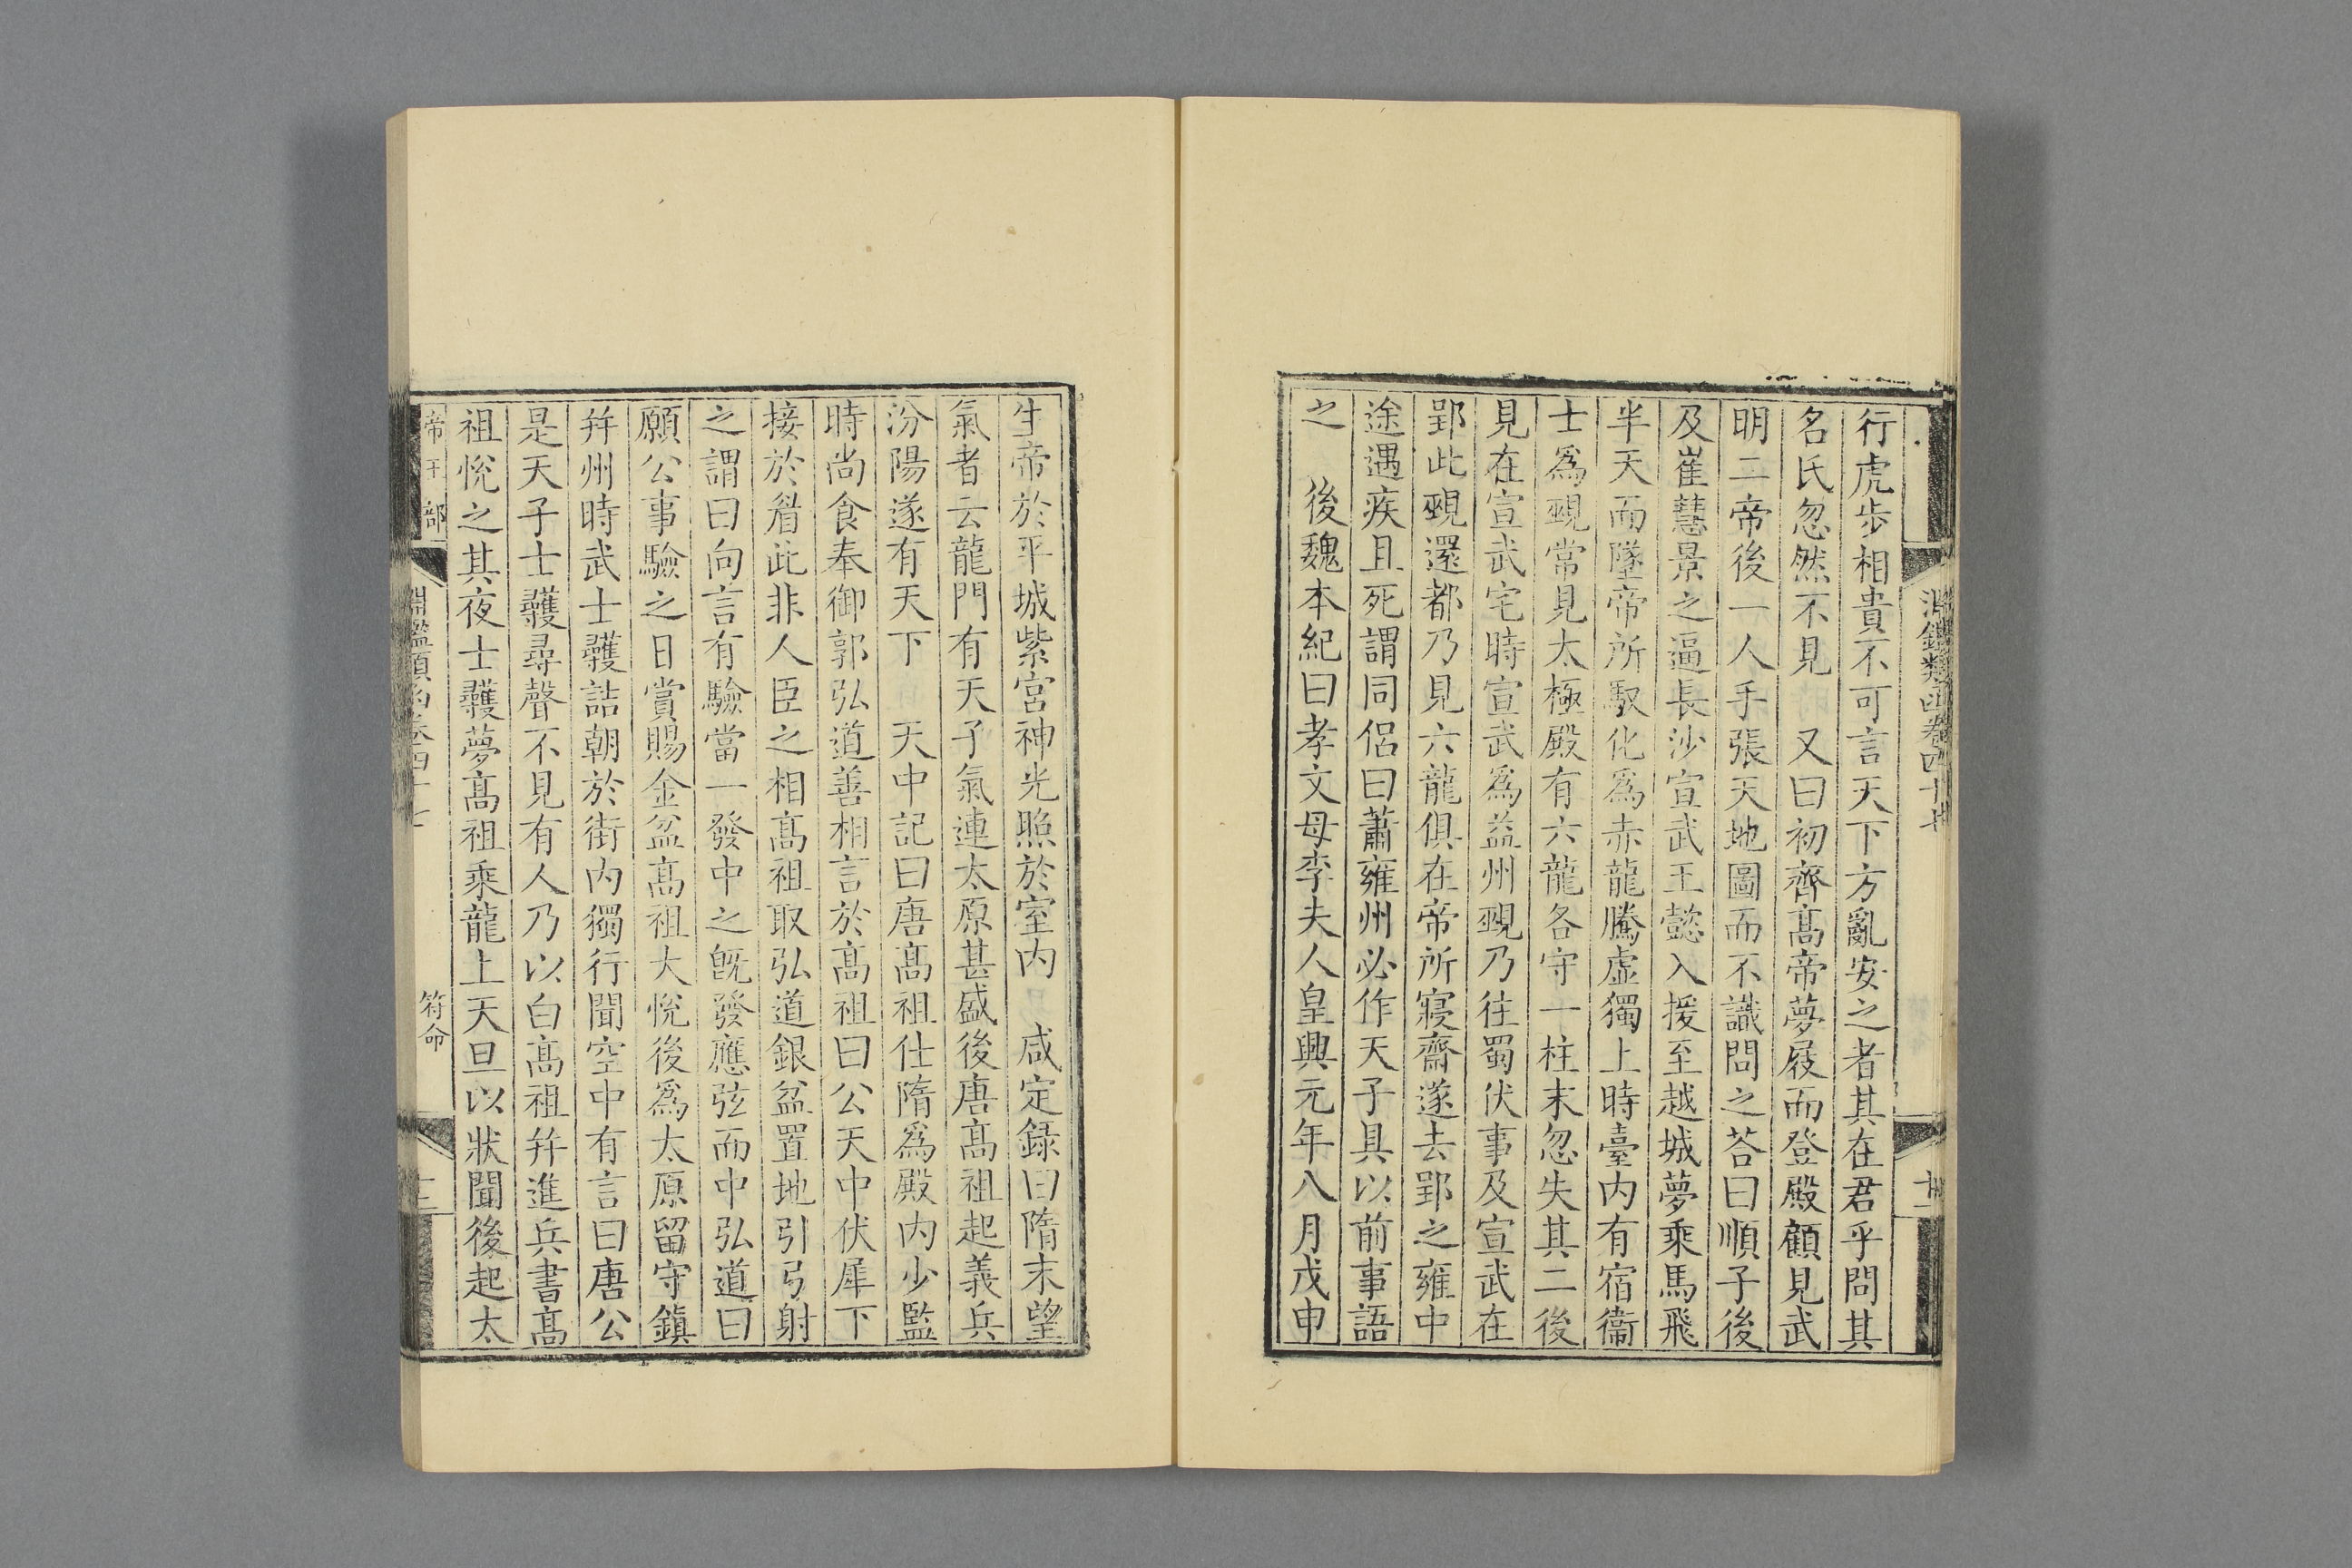 淵鑑類函卷四十七
行虎步相貴不可言天下方亂安之者其在君乎問其
名氏忽然不見 又曰初齊髙帝夢屐而登殿顧見武
明二帝後一人手張天地圖而不識問之荅曰順子後
及崔慧景之逼長沙宣武王懿入援至越城夢乘馬飛
半天而墜帝所馭化爲赤龍騰虛獨上時臺内有宿衞
士爲覡常見太極殿有六龍各守一柱末忽失其二後
見在宣武宅時宣武爲益州覡乃往蜀伏事及宣武在
郢此覡還都乃見六龍俱在帝所寢齋遂去郢之雍中
途遇疾且死謂同侶曰蕭雍州必作天子具以前事語
之 後魏本紀曰孝文母李夫人皇興元年八月戊申
生帝於平城紫宮神光照於室内 咸定録曰隋末望
氣者云龍門有天子氣連太原甚盛後唐髙祖起義兵
汾陽遂有天下 天中記曰唐髙祖仕隋爲殿内少監
時尚食奉御郭弘道善相言於髙祖曰公天中伏犀下
接於眉此非人臣之相髙祖取弘道銀盆置地引弓射
之謂曰向言有驗當一發中之旣發應弦而中弘道曰
願公事驗之日賞賜金盆髙祖大悅後爲太原留守鎭
幷州時武士彠詰朝於街内獨行聞空中有言曰唐公
是天子士彠尋聲不見有人乃以白髙祖幷進兵書髙
祖悅之其夜士彠夢髙祖乘龍上天旦以狀聞後起太
帝王部
淵鑑類函卷四十七
符命